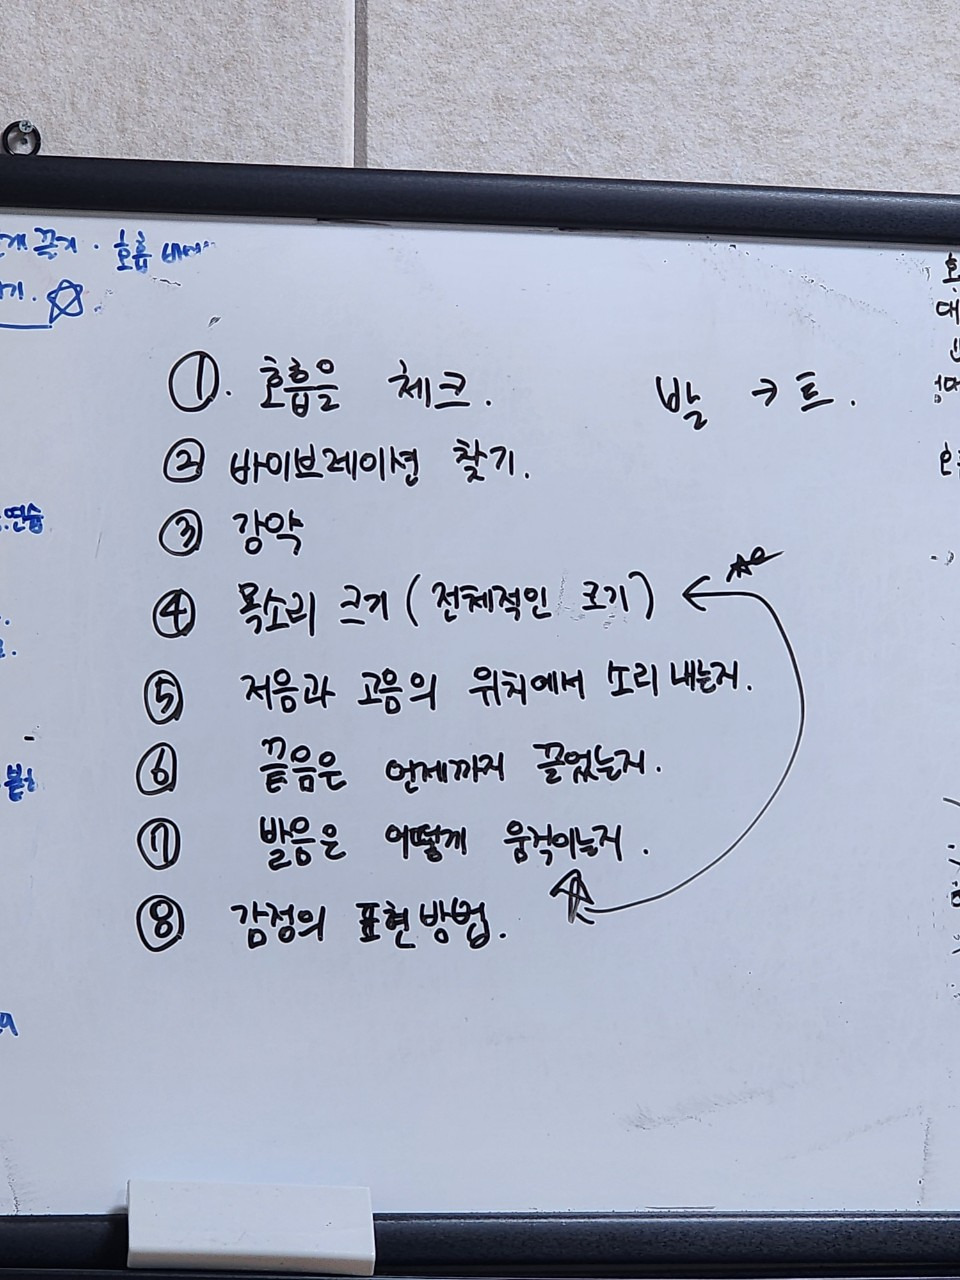 끌기. 호흡
①. 호흡을 체크.
발 → 트.
② 바이브레이션 찾기.
③ 강약
④ 목소리 크기 (전체적인 크기)
⑤ 저음과 고음의 위치에서 소리 내는지.
⑥ 끝음은 언제까지 끌었는지.
⑦ 발음은 어떻게 움직이는지.
⑧ 감정의 표현방법.
연습